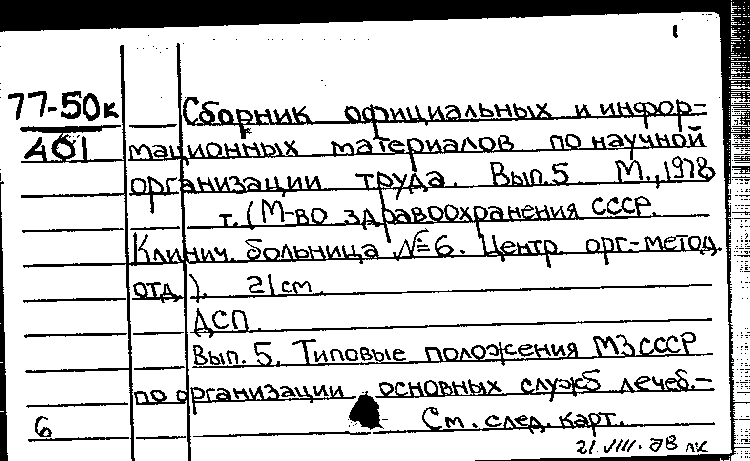 1
77-50к Сборник официальных и инфор=
461 мационных материалов по научной
организации труда. Вып. 5 М., 1978
т. (М-во здравоохранения СССР.
Клинич. больница №6. Центр. орг-метод.
отд.). 21 cm.
ДСП.
Вып. 5. Типовые положения МЗ СССР
по организации основных служб лечеб.-
6 См. след. карт.
21 VIII. 78